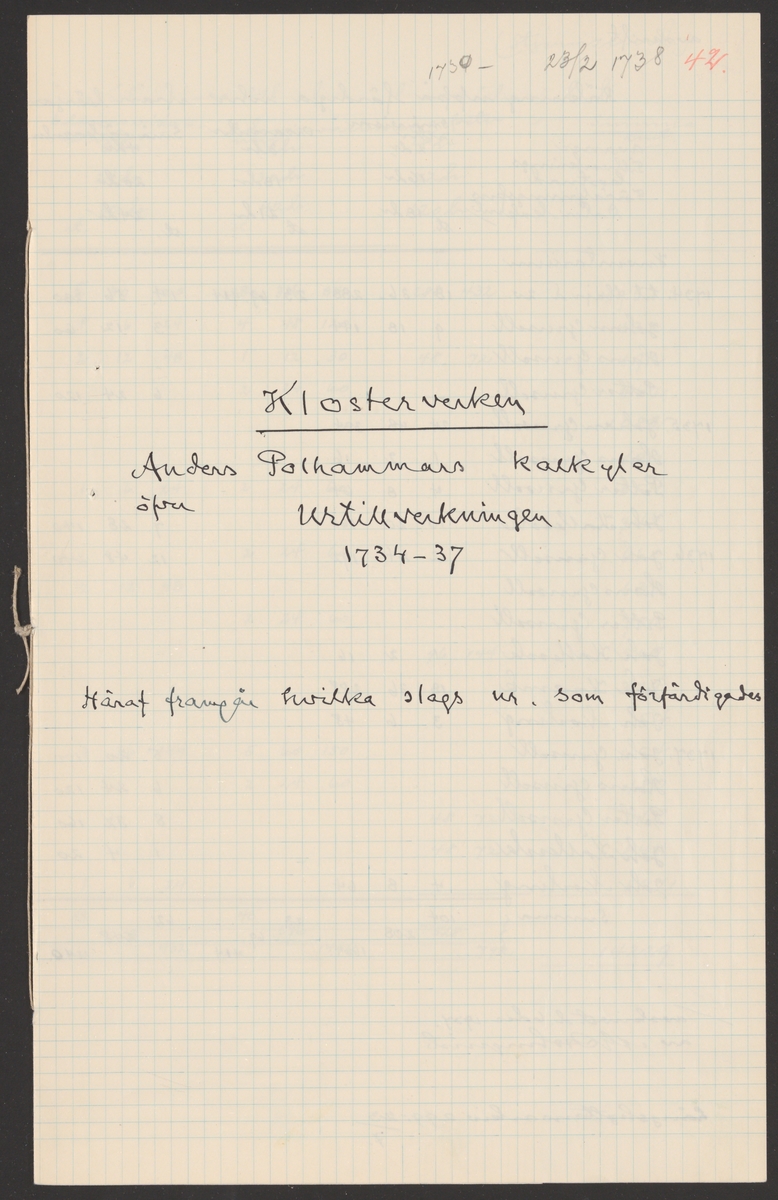 1730 – 23/2 1738 42.
Klosterverken
Anders Polhammars kalkyler
öfver Urtillverkningen
1734–37
Häraf framgår hvilka slags ur. som förfärdigades